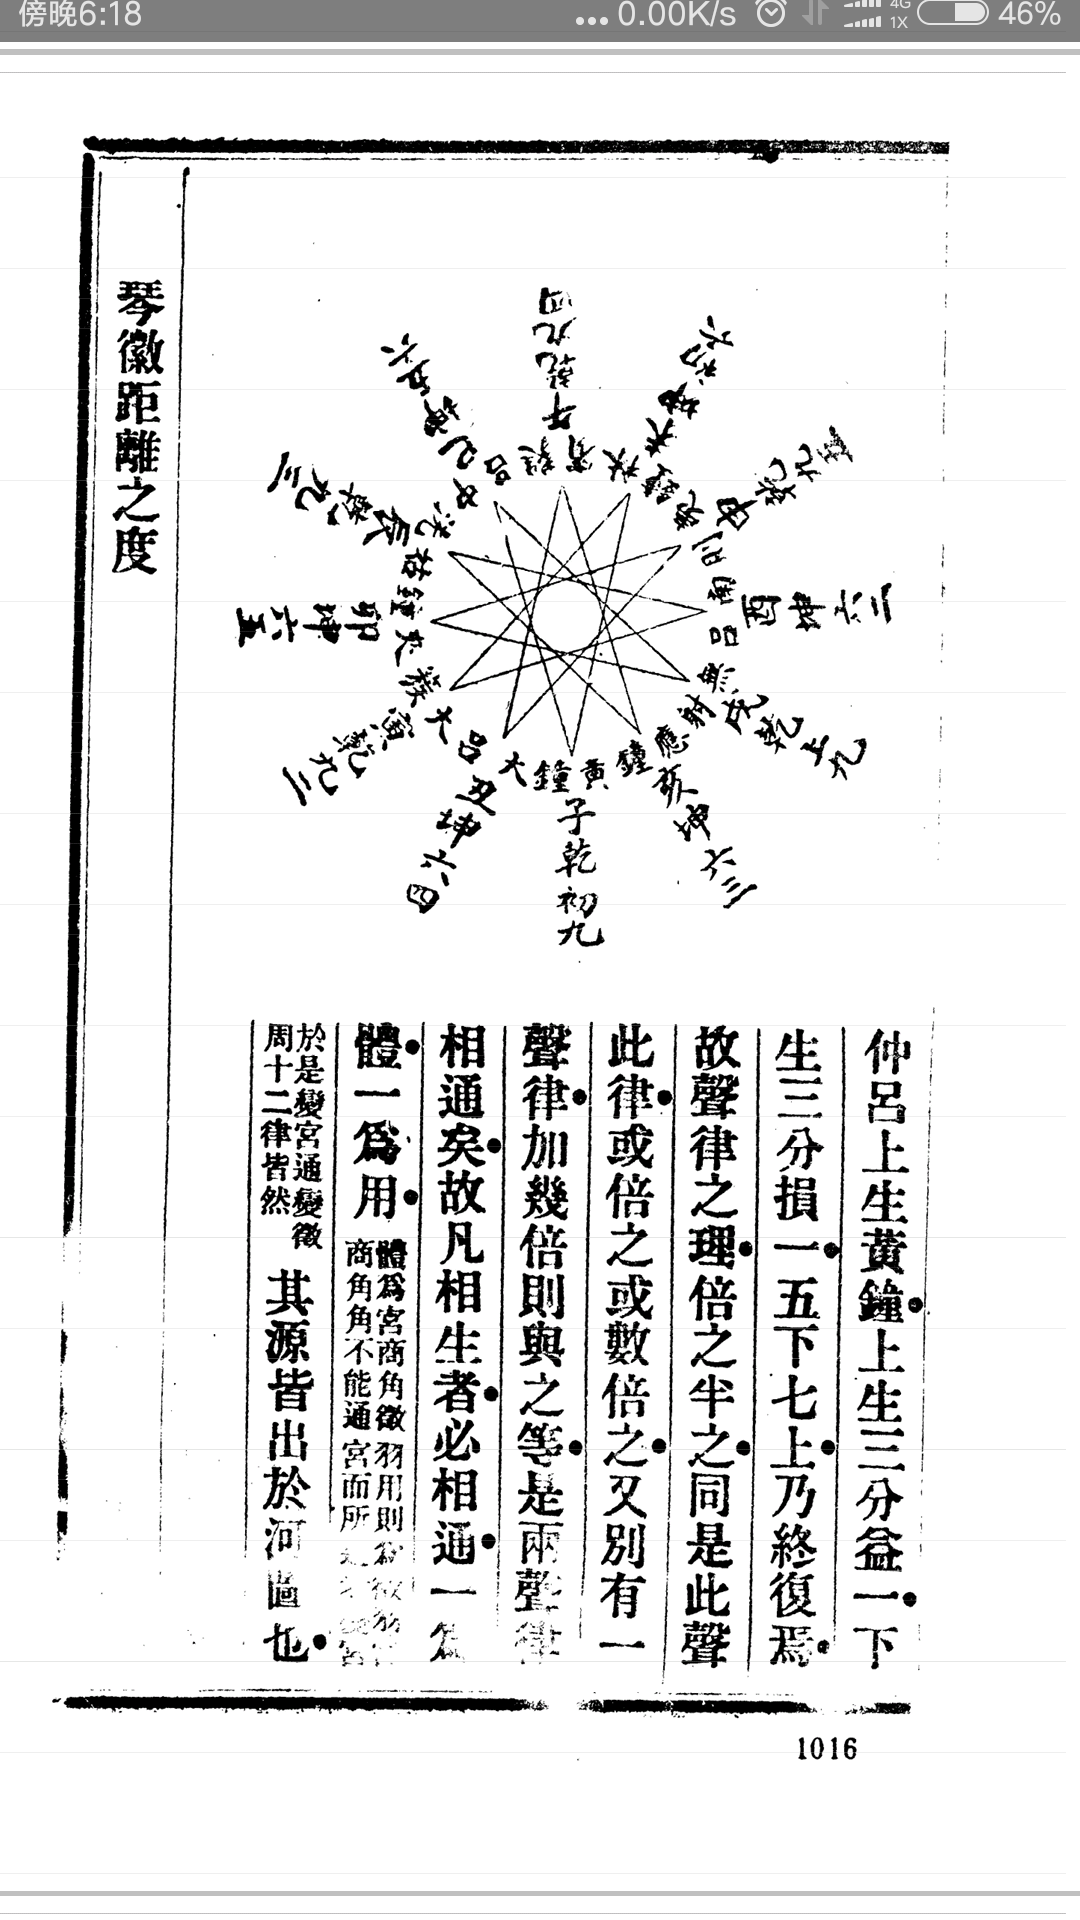 傍晚6:18
...0.00K/s
4G
1X
46%
子乾初九
黃鐘
丑坤六四
大呂
寅乾九二
大簇
卯坤六五
夾鐘
辰乾九三
姑洗
巳坤上六
中呂
午乾九四
蕤賓
未坤初六
林鐘
申乾九五
夷則
酉坤六二
南呂
戌乾上九
無射
亥坤六三
應鐘
仲呂上生黃鐘上生三分益一下
生三分損一五下七上乃終復焉
故聲律之理倍之半之同是此聲
此律或倍之或數倍之又別有一
聲律加幾倍則與之等是兩聲律
相通矣故凡相生者必相通一爲
體一爲用
體爲宮商角徵羽用則爲徵羽
商角角不能通宮而所
於是變宮通變徵
周十二律皆然
其源皆出於河圖也
琴徽距離之度
1016